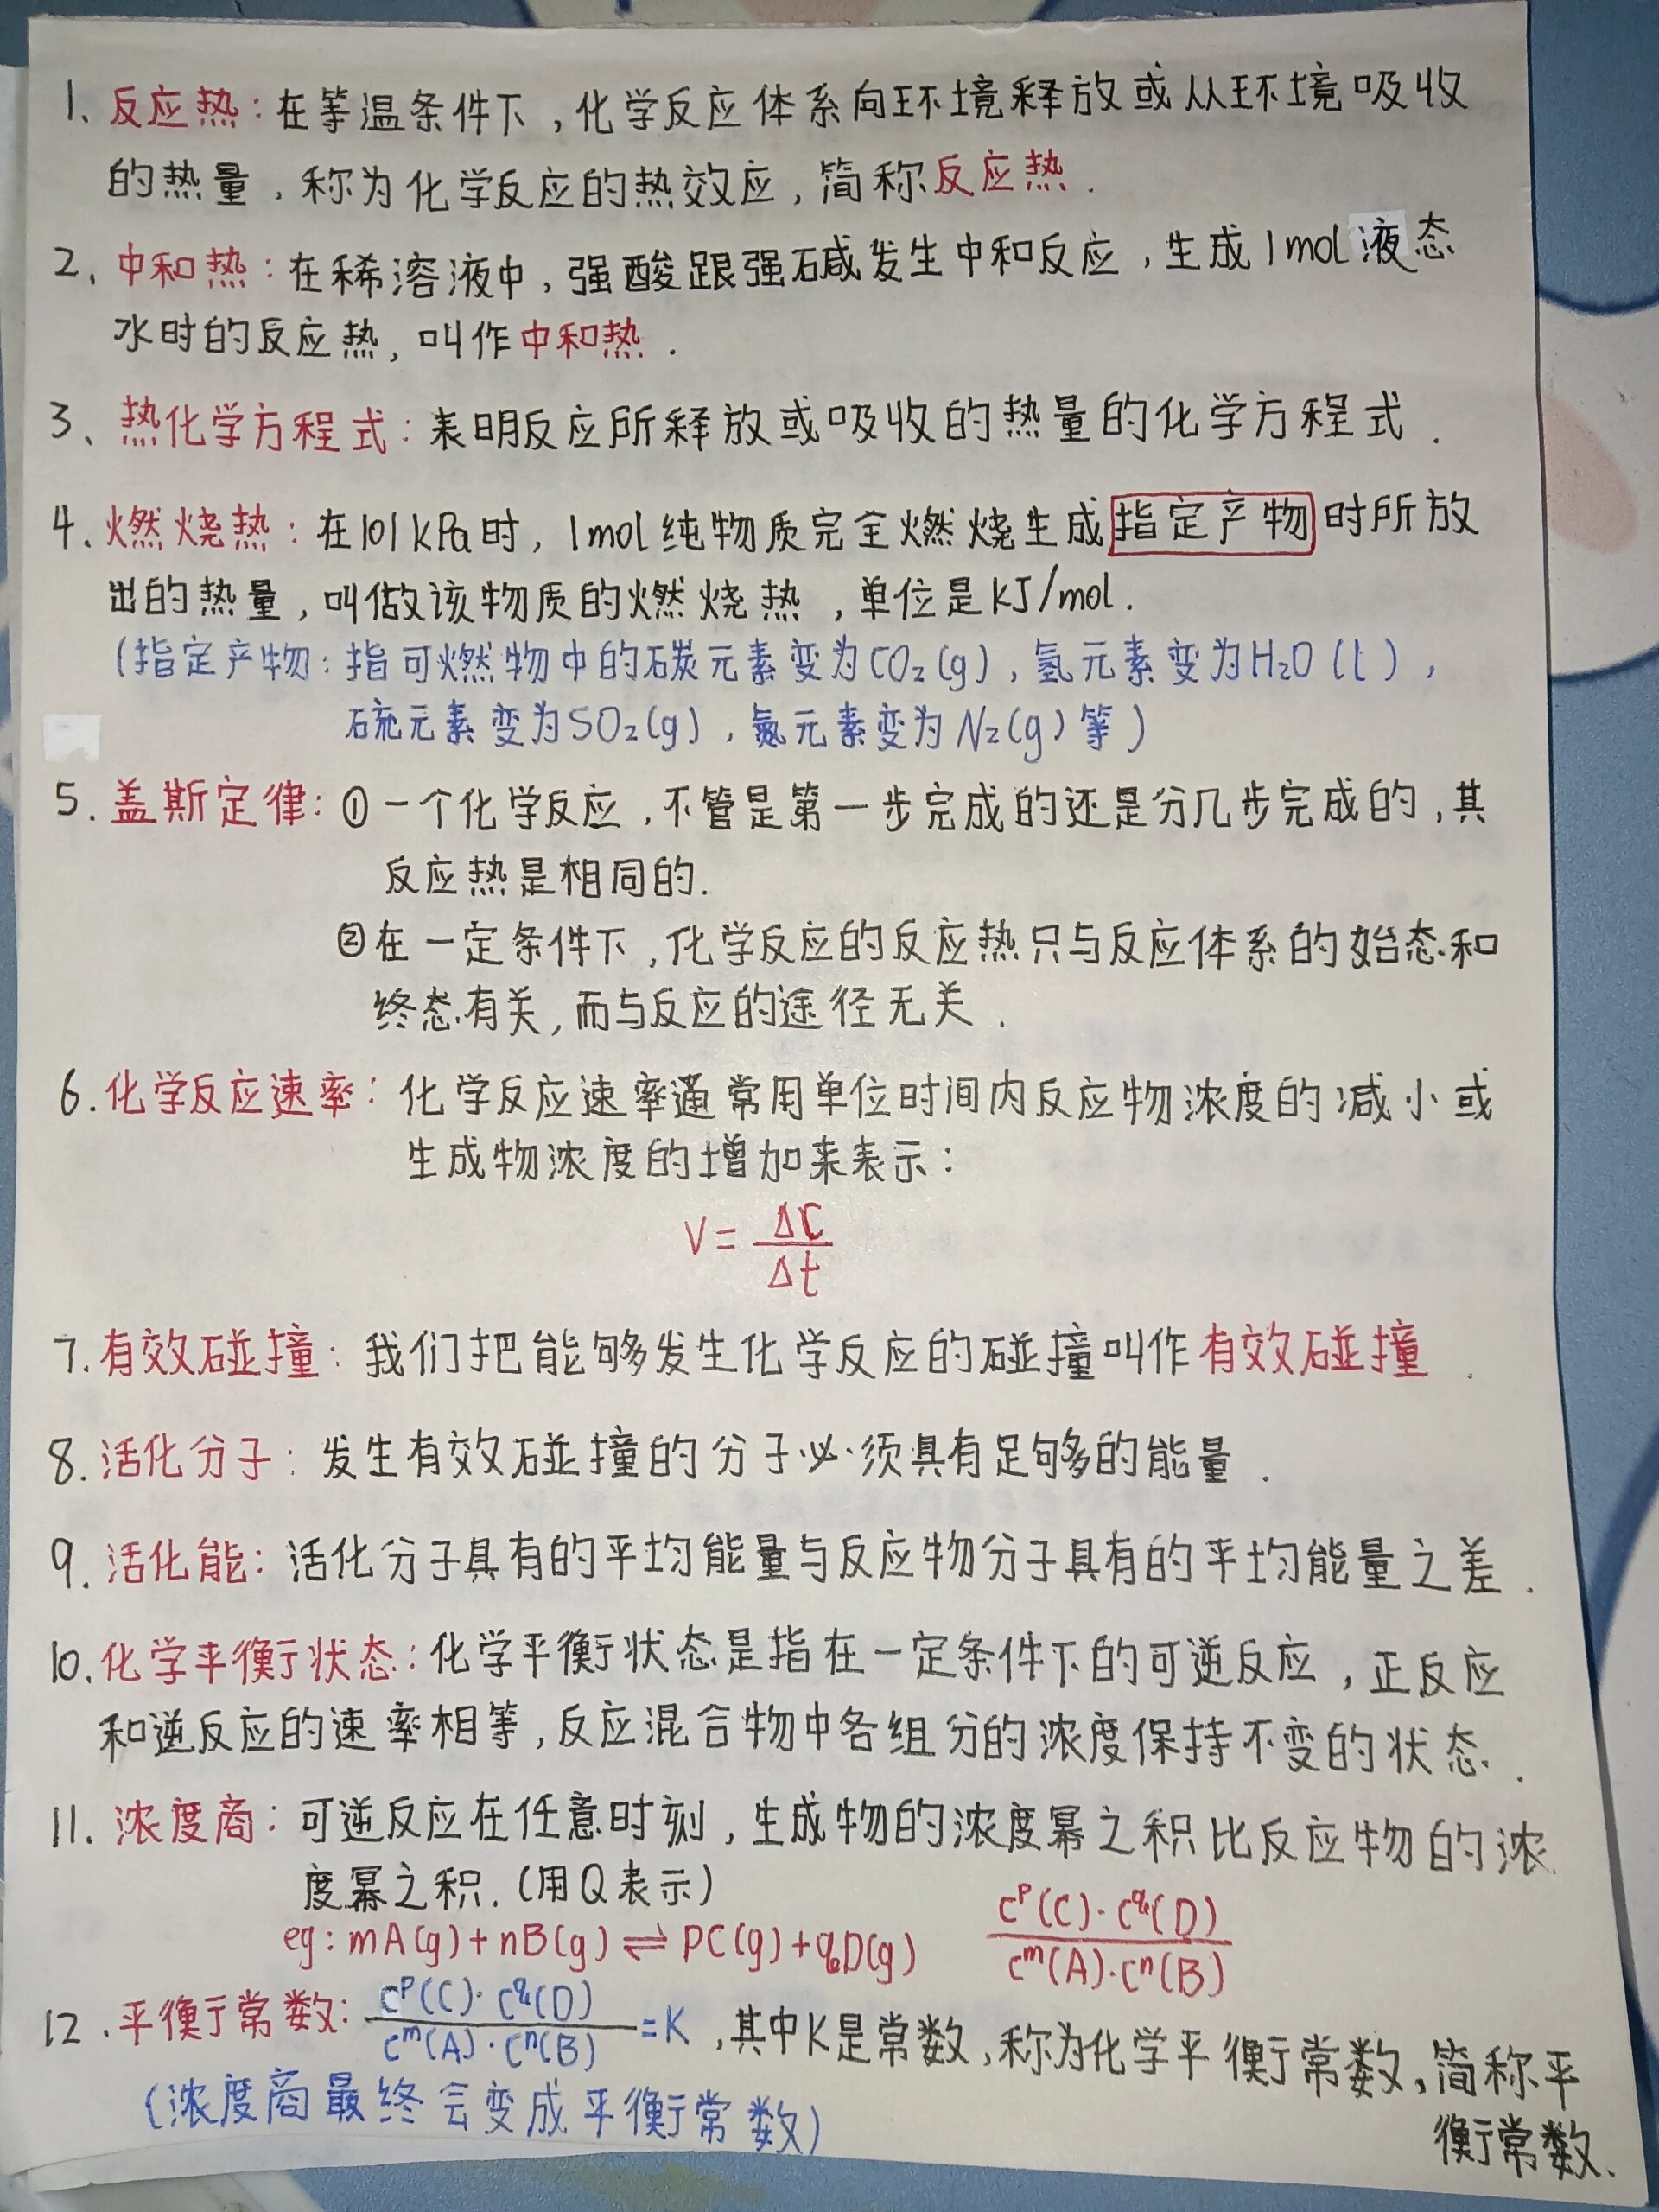 1、反应热：在等温条件下，化学反应体系向环境释放或从环境吸收
的热量，称为化学反应的热效应，简称反应热．
2、中和热：在稀溶液中，强酸跟强碱发生中和反应，生成1mol液态
水时的反应热，叫作中和热．
3、热化学方程式：表明反应所释放或吸收的热量的化学方程式．
4、燃烧热：在101kPa时，1mol纯物质完全燃烧生成指定产物时所放
出的热量，叫做该物质的燃烧热，单位是kJ/mol．
（指定产物：指可燃物中的碳元素变为CO₂(g)，氢元素变为H₂O(l)，
硫元素变为SO₂(g)，氮元素变为N₂(g)等）
5．盖斯定律：①一个化学反应，不管是第一步完成的还是分几步完成的，其
反应热是相同的．
②在一定条件下，化学反应的反应热只与反应体系的始态和
终态有关，而与反应的途径无关．
6．化学反应速率：化学反应速率通常用单位时间内反应物浓度的减小或
生成物浓度的增加来表示：
V=ΔC/Δt
7．有效碰撞：我们把能够发生化学反应的碰撞叫作有效碰撞．
8．活化分子：发生有效碰撞的分子必须具有足够的能量．
9．活化能：活化分子具有的平均能量与反应物分子具有的平均能量之差．
10．化学平衡状态：化学平衡状态是指在一定条件下的可逆反应，正反应
和逆反应的速率相等，反应混合物中各组分的浓度保持不变的状态．
11．浓度商：可逆反应在任意时刻，生成物的浓度幂之积比反应物的浓
度幂之积．（用Q表示）
eg：mA(g)+nB(g)⇌PC(g)+qD(g) cᵖ(C)·c^q(D)/cᵐ(A)·cⁿ(B)
12．平衡常数：cᵖ(C)·c^q(D)/cᵐ(A)·cⁿ(B)=K，其中K是常数，称为化学平衡常数，简称平
衡常数．
（浓度商最终会变成平衡常数）